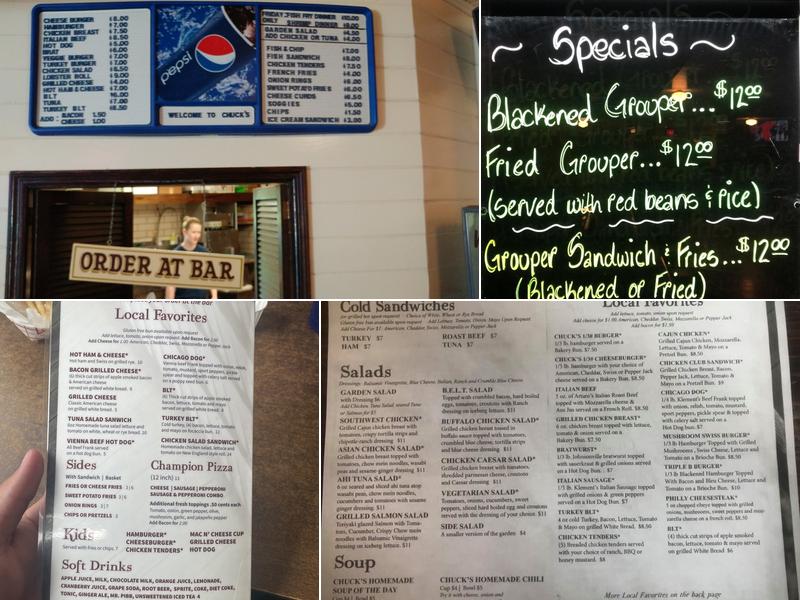 CHEESE BURGER $8.00
HAMBURGER $7.00
CHICKEN BREAST $7.50
ITALIAN BEEF
HOT DOG $5.00
BRAT
VEGGIE BURGER $7.00
TURKEY BURGER $7.00
CHICKEN SALAD
LOBSTER ROLL $9.00
GRILLED CHEESE $4.00
HOT HAM & CHEESE $7.00
BLT $6.00
TUNA $7.00
TURKEY BLT $8.50
ADD: BACON 1.50
CHEESE 1.00
pepsi
WELCOME TO CHUCK'S
FRIDAY FISH FRY DINNER
ONLY SHRIMP DINNER
GARDEN SALAD
ADD CHICKEN OR TUNA
FISH & CHIP $7.00
FISH SANDWICH $8.00
CHICKEN TENDERS
FRENCH FRIES $4.00
ONION RINGS
SWEET POTATO FRIES
CHEESE CURDS
SOGGIES $5.00
CHIPS $1.50
ICE CREAM SANDWICH
ORDER AT BAR
~ Specials ~
Blackened Grouper...$12.00
Fried Grouper...$12.00
(Served with red beans & rice)
Grouper Sandwich & Fries...$12.00
(Blackened or Fried)
Local Favorites
Gluten free bun available upon request
Add lettuce, tomato, onion upon request. Add Bacon for 2.00
HOT HAM & CHEESE*
Hot ham and Swiss on grilled rye. 10
BACON GRILLED CHEESE*
(6) thick cut strips of apple smoked bacon
& American cheese
served on grilled white bread. 9
GRILLED CHEESE
Classic American cheese
on grilled white bread. 5
TUNA SALAD SANDWICH
6oz Homemade tuna salad lettuce and
tomato on white, wheat or rye bread
VIENNA BEEF HOT DOG*
All Beef Frank served
on a hot dog bun. 5
CHICAGO DOG*
BLT*
(6) Thick cut strips of apple smoked
bacon, lettuce, tomato and mayo
served on grilled white bread. 8
TURKEY BLT*
Cold turkey, (4) bacon, lettuce, tomato
and mayo on focaccia bun. 12
CHICKEN SALAD SANDWICH*
Homemade chicken salad, lettuce and
tomato on New England style roll.
Sides
With Sandwich | Basket
FRIES OR CHEESE FRIES 3 | 6
SWEET POTATO FRIES 3 | 6
ONION RINGS
CHIPS OR PRETZELS
Champion Pizza
(12 inch) 11
CHEESE | SAUSAGE | PEPPERONI
SAUSAGE & PEPPERONI COMBO
Additional fresh toppings .50 cents each
Tomato, onion, green pepper, olive,
mushroom, garlic, and jalapeño pepper
Add Bacon for 2.00
Kids
Served with fries or chips. 7
HAMBURGER*
CHEESEBURGER*
CHICKEN TENDERS*
MAC N' CHEESE CUP
GRILLED CHEESE
HOT DOG
Soft Drinks
APPLE JUICE, MILK, CHOCOLATE MILK, ORANGE JUICE, LEMONADE,
CRANBERRY JUICE, GRAPE SODA, ROOT BEER, SPRITE, COKE, DIET COKE,
TONIC, GINGER ALE, MR. PIBB, UNSWEETENED ICE TEA 4
Cold Sandwiches
(or grilled hot upon request) Choice of White, Wheat or Rye Bread
Gluten free bun available upon request Add Lettuce, Tomato, Onion, Mayo Upon Request
Add Cheese For $1: American, Cheddar, Swiss, Mozzarella or Pepper Jack
TURKEY $7
HAM $7
ROAST BEEF $7
TUNA $7
Salads
Dressings: Balsamic Vinaigrette, Blue Cheese, Italian, Ranch and Crumble Blue Cheese
GARDEN SALAD
with Dressing $6
Add Chicken, Tuna salad, roasted Tuna
or Salmon for $5
SOUTHWEST CHICKEN*
Grilled Cajun chicken breast with
tomatoes, crispy tortilla strips and
chipotle ranch dressing $11
ASIAN CHICKEN SALAD*
Grilled chicken breast topped with
tomatoes, chow mein noodles, wasabi
peas and sesame ginger dressing $11
AHI TUNA SALAD*
6 oz seared and sliced ahi tuna atop
wasabi peas, chow mein noodles,
cucumbers and tomatoes with sesame
ginger dressing. $11
GRILLED SALMON SALAD
Teriyaki glazed Salmon with Tomatoes,
Cucumber, Crispy Chow mein
noodles with Balsamic Vinaigrette
dressing on iceberg lettuce. $11
B.E.L.T. SALAD
Topped with crumbled bacon, hard boiled
egg, tomatoes, croutons with Ranch
dressing on iceberg lettuce. $11
BUFFALO CHICKEN SALAD*
Grilled chicken breast tossed in
buffalo sauce topped with tomatoes,
crumbled blue cheese, tortilla strips
and blue cheese dressing $11
CHICKEN CAESAR SALAD*
Grilled chicken breast with tomatoes,
shredded parmesan cheese, croutons
and Caesar dressing $11
VEGETARIAN SALAD*
Tomatoes, onions, cucumbers, sweet
peppers, sliced hard boiled egg and croutons
served with the dressing of your choice. $11
SIDE SALAD
A smaller version of the garden $4
Soup
CHUCK'S HOMEMADE
SOUP OF THE DAY
CHUCK'S HOMEMADE CHILI
Cup $4 | Bowl $5
Local Favorites
Add lettuce, tomato, onion upon request
Add cheese for $1.00: American, Cheddar, Swiss, Mozzarella or Pepper Jack
Add bacon for $1.50
CHUCK'S 1/3# BURGER*
1/3 lb. hamburger served on a
Bakery Bun. $7.50
CHUCK'S 1/3# CHEESEBURGER*
1/3 lb. hamburger with your choice of
American, Cheddar, Swiss or Pepper Jack
cheese served on a Bakery Bun. $8.50
ITALIAN BEEF
5 oz. of Arturo's Italian Roast Beef
topped with Mozzarella cheese &
Aus Jus served on a French Roll. $8.50
GRILLED CHICKEN BREAST*
6 oz. chicken breast topped with lettuce,
tomato & onion served on a
Bakery Bun. $7.50
BRATWURST*
1/3 lb. Johnsonville bratwurst topped
with sauerkraut & grilled onions served
on a Hot Dog Bun. $7
ITALIAN SAUSAGE*
1/3 lb. Klement's Italian Sausage topped
with grilled onions & green peppers
served on a Hot Dog Bun. $7
TURKEY BLT*
4 oz cold Turkey, Bacon, Lettuce, Tomato
& Mayo on grilled White Bread. $8.50
CHICKEN TENDERS*
(5) Breaded chicken tenders served
with your choice of ranch, BBQ or
honey mustard. $8
CAJUN CHICKEN*
Grilled Cajun Chicken, Mozzarella,
Lettuce, Tomato & Mayo on a
Pretzel Bun. $8.50
CHICKEN CLUB SANDWICH*
Grilled Chicken Breast, Bacon,
Pepper Jack, Lettuce, Tomato &
Mayo on a Pretzel Bun. $9
CHICAGO DOG*
1/4 lb. Klement's Beef Frank topped
with onion, relish, tomato, mustard,
sport peppers, pickle spear & topped
with celery salt served on a
Hot Dog Bun. $7
MUSHROOM SWISS BURGER*
1/3 lb Hamburger Topped with Grilled
Mushrooms, Swiss Cheese, Lettuce and
Tomato on a Brioche Bun. $8.50
TRIPLE B BURGER*
1/3 lb Blackened Hamburger Topped
With Bacon and Bleu Cheese, Lettuce and
Tomato on a Brioche Bun. $10
PHILLY CHEESESTEAK*
BLT*
(4) thick cut strips of apple smoked
bacon, lettuce, tomato & mayo served
on grilled White Bread $6
More Local Favorites on the back page